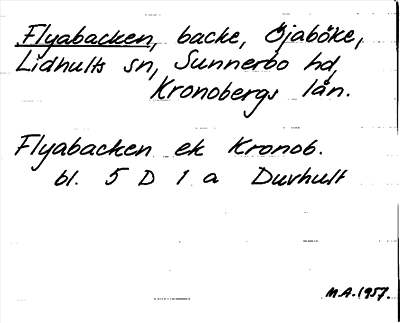 Flyabacken, backe, Öjaböke,
Lidhults sn, Sunnerbo hd,
Kronobergs län.
Flyabacken ek Kronob.
bl. 5 D 1 a Duvhult
M.A. 1957.